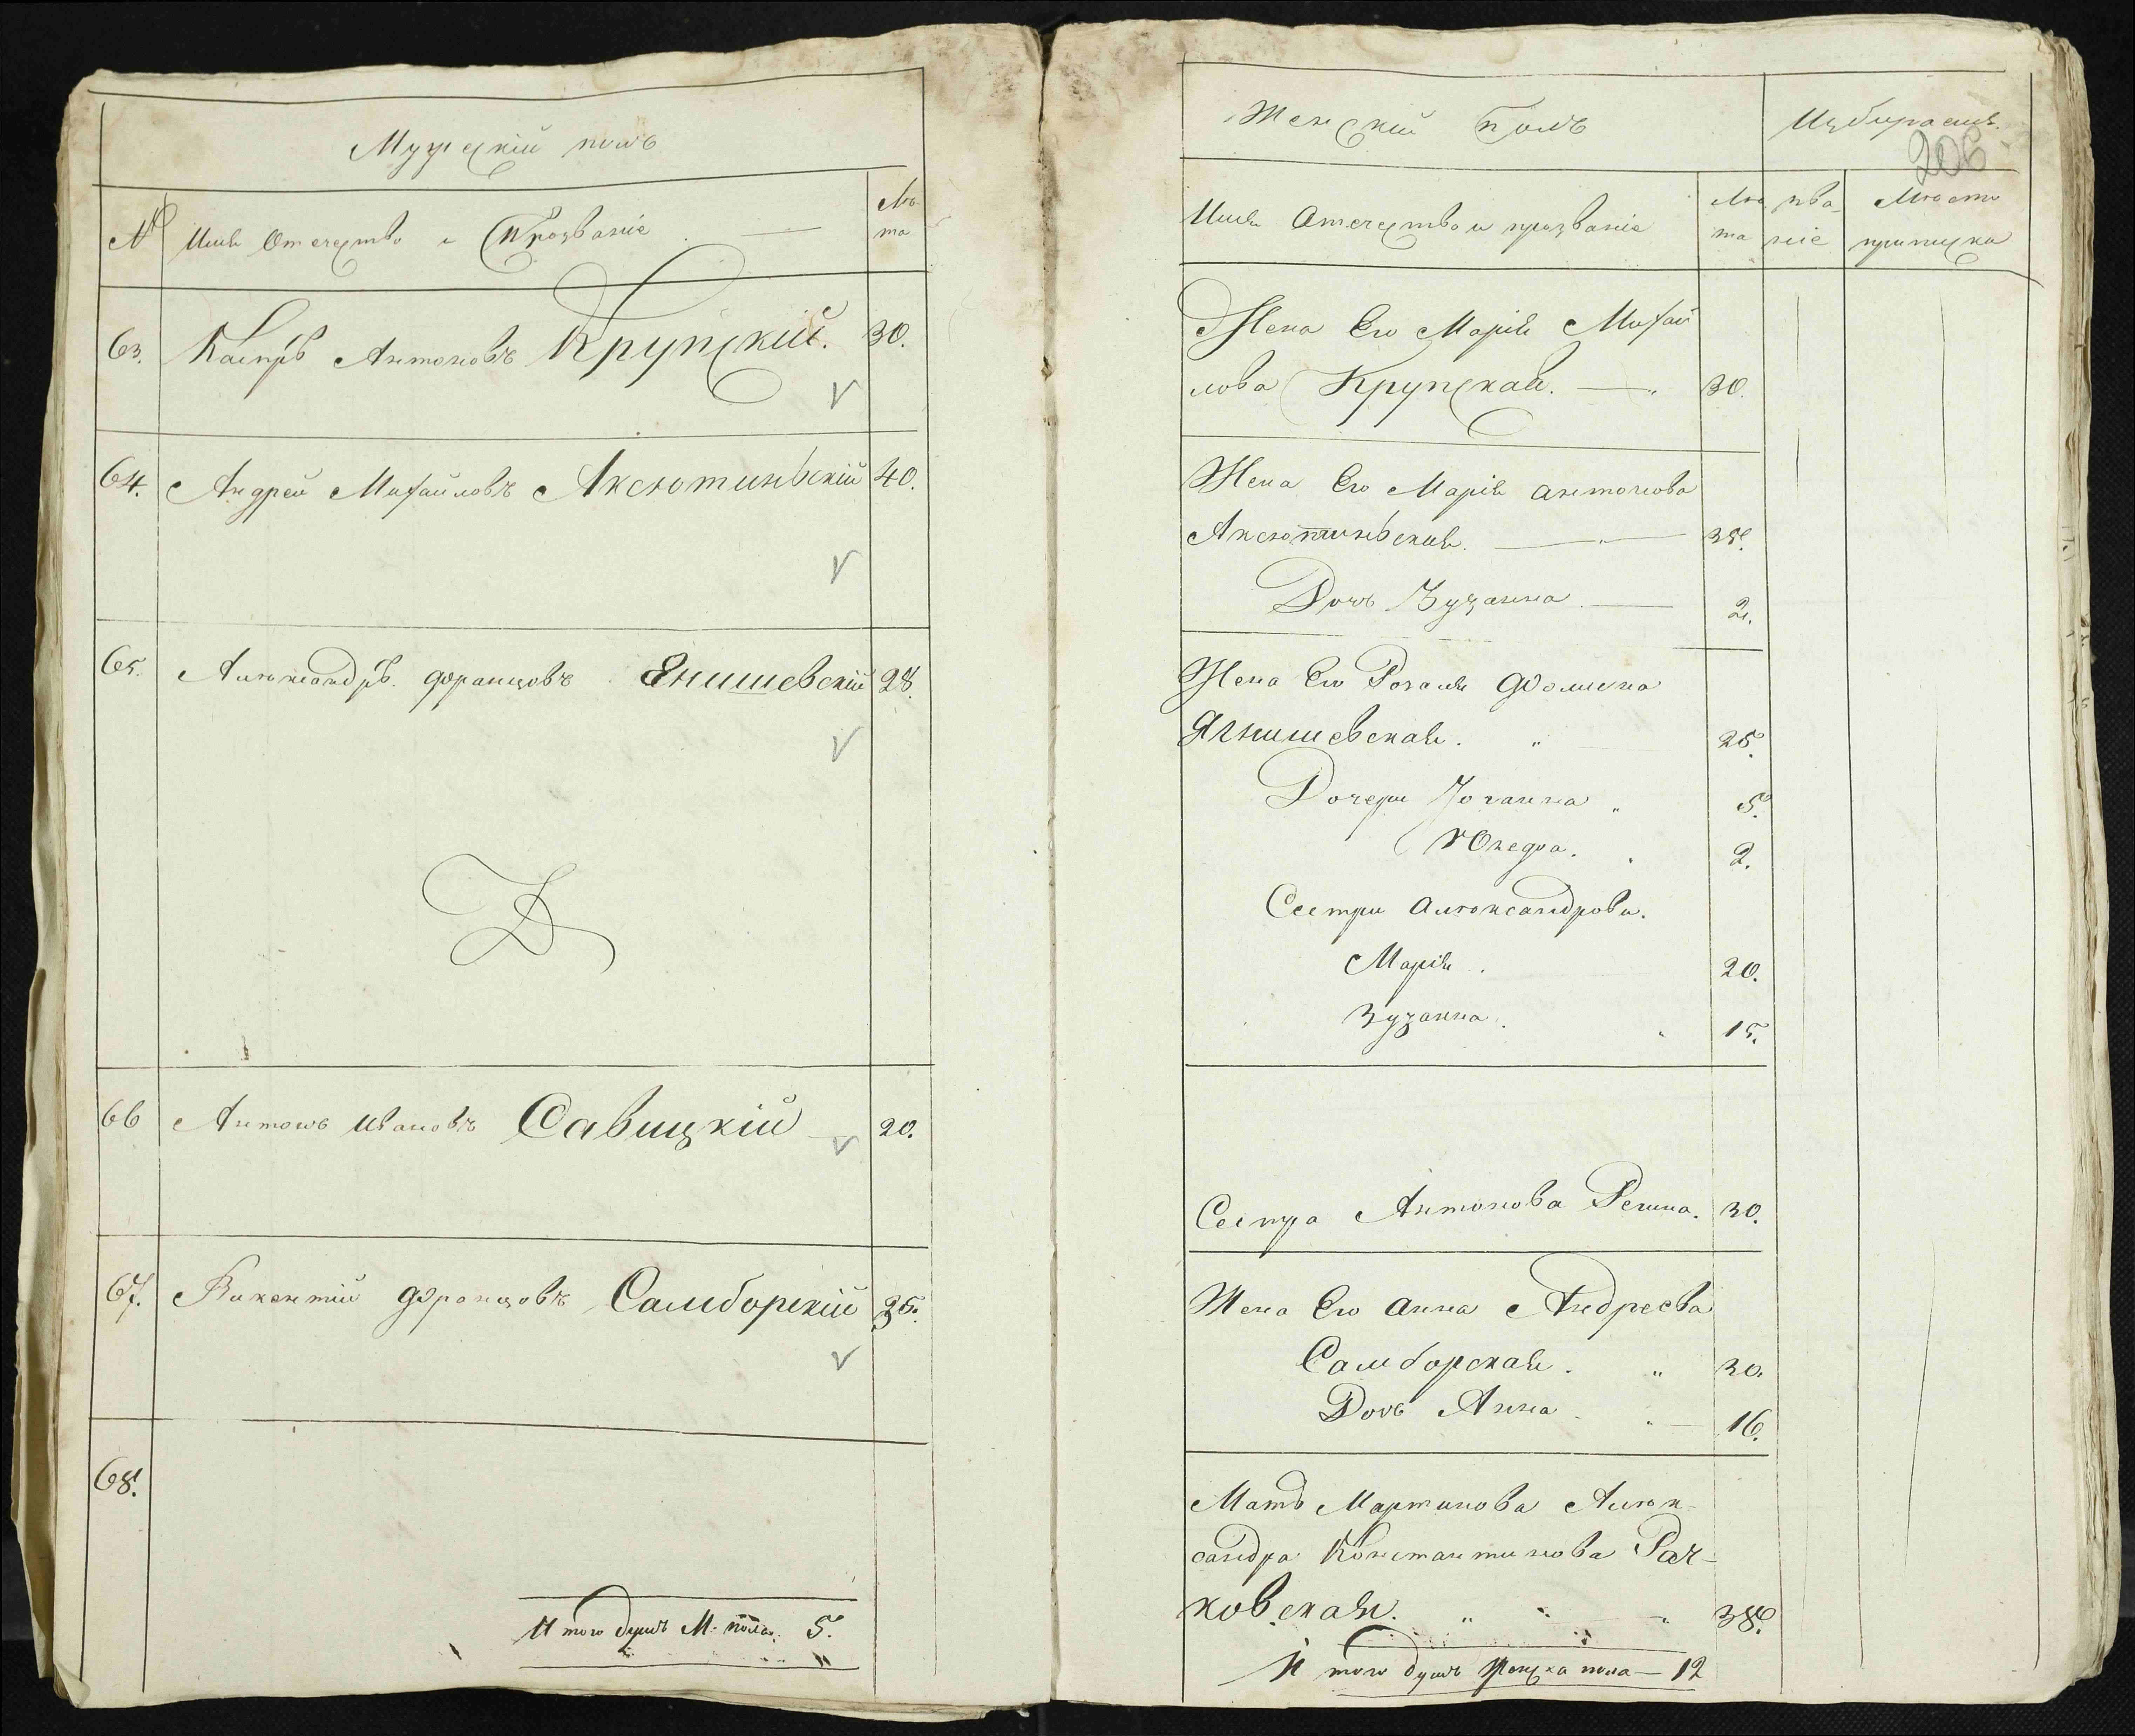 Мужескій полъ
№ Имя Отечество и Прозваніе Лѣ-
та
63. Каспръ Антоновъ Крупскій. 30.
64. Андрей Михайловъ Аксютинскій 40.
65. Александръ Францовъ Енишевскій 28.
66 Антонъ Ивановъ Савицкій 20.
67. Викентій Францовъ Самборскій
68.
Итого душъ М. пола. 5.
Женскій полъ
206
Имя Отечество и прозваніе Лѣ
та
Мѣсто
приписки
Жена Его Марія Михай
лова Крупская. 30.
Жена Его Марія Антонова
Аксютинская. 35.
Дочь Зузанна 2.
Жена Его Розалія Фомина
Янишевская. 25.
Дочери Іоганна 5.
2.
Сестри Александрови.
Марія. 20.
Зузанна. 15.
Сестра Антонова Регина. 30.
Жена Его Анна Андреева
Самборская. 30.
Дочь Анна 16.
Мать Мартинова Алек-
сандра Константинова Рач-
ковская. 38.
Итого душъ женска пола — 12